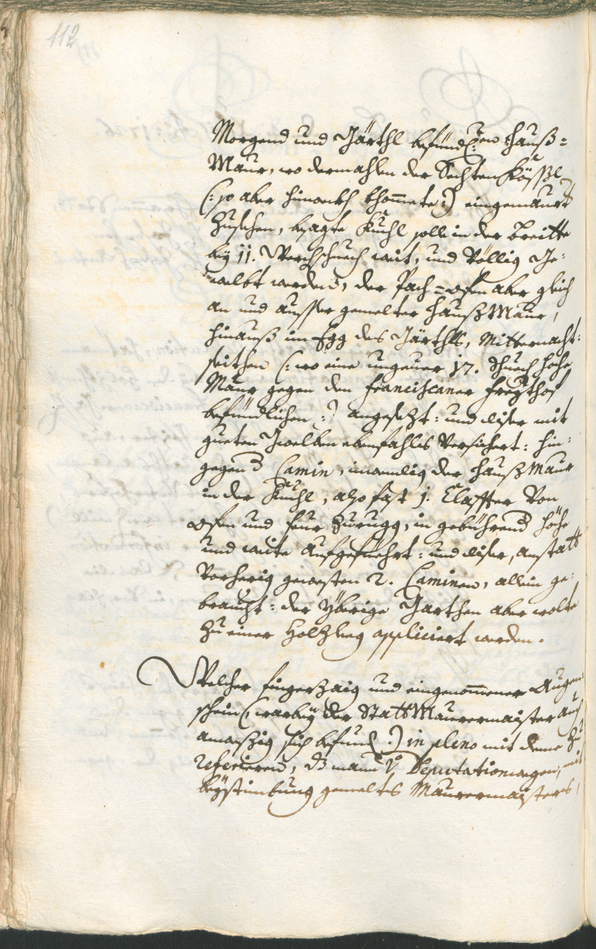 112
Morgend und Gärthl befündlichen Hauß=
Maur, wo dermahlen der Sechten Kößßl
(: so aber hinwekh khommete :) eingemaurt
zusehen, besagte Kuchl soll in der Breitte
bey 11. Werchschuech weit, und völlig ge=
welbt werden, der Pach=ofen aber gleich
an und ausser gemelter Hauß Maur,
hinauß im Egg des Gärthls, Mitternacht=
seithen (: wo eine ungeuer 17. Schuech hohe
Maur gegen den Franciscaner Freythof
befündlichen :) angesezt: und diser mit
gueten Gwelben ebenfahls versichert: hin=
gegen Camin, inwendig der Hauß Maur
in der Kuchl, also fast 1. Claffter von
ofen und feur zurugg, in gebührend Höhe
und weite aufgeführt: und diser, anstatt
vorherig gewesten 2. Caminen, allein ge=
braucht: der ybrige Garthen aber wolte
zu einer Holzleg appliciert werden.
Welcher fingerzaig und eingenommener Augen
schein (: warbey der Statt Maurermaister auch
anwesig sich befund :) in pleno mit deme zu
referierend, das man Deputationwegen, mit
Beystimbung gemelts Maurermaisters,